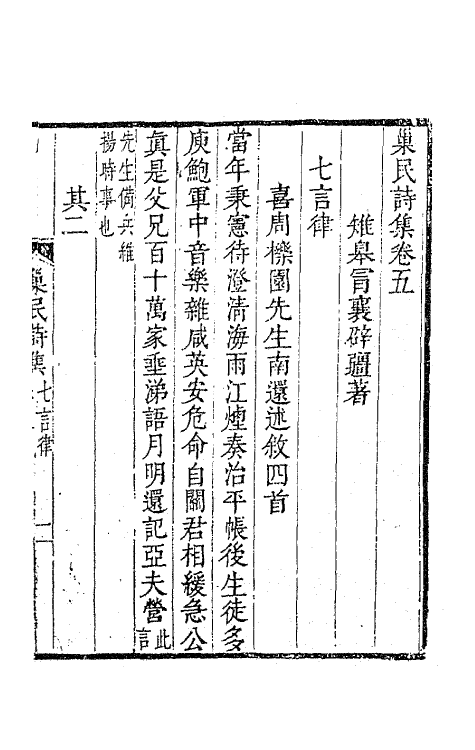 巢民詩集卷五
雉皋冒襄辟疆著
七言律
喜周櫟園先生南還述敘四首
當年秉憲待澄清海雨江煙奏治平帳後生徒多
庾鮑軍中音樂雜咸英安危命自關君相緩急公
真是父兄百十萬家垂涕語月明還記亞夫營此言
先生備兵維
揚時事也
其二
巢民詩集 七言律 一